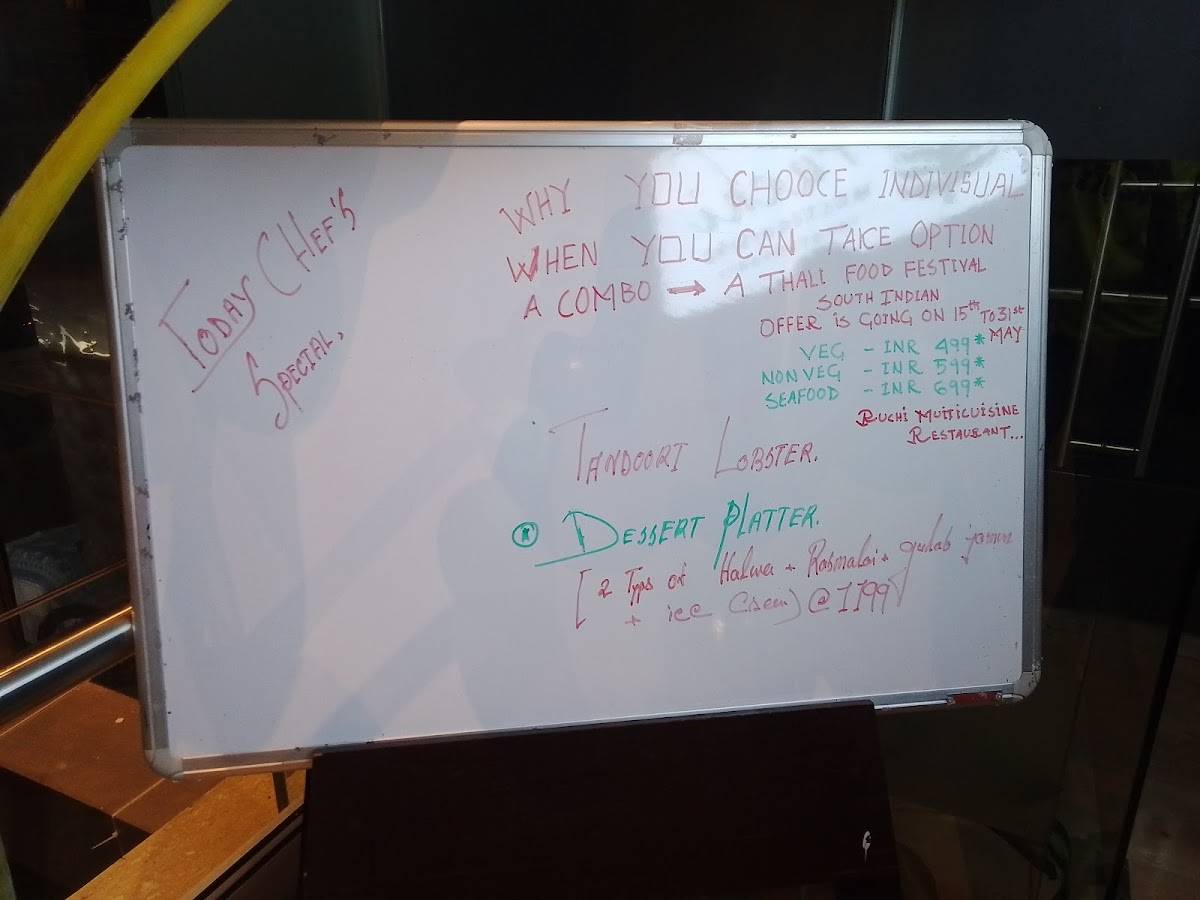 TODAY CHEF'S
SPECIAL,
WHY YOU CHOOCE INDIVISUAL
WHEN YOU CAN TAKE OPTION
A COMBO → A THALI FOOD FESTIVAL
SOUTH INDIAN
OFFER IS GOING ON 15th TO 31st
MAY
VEG - INR 499*
NON VEG - INR 599*
SEAFOOD - INR 699*
RUCHI MUITICUISINE
RESTAURANT...
TANDOORI LOBSTER.
DESSERT PLATTER.
[2 Typs of Halwa + Rasmalai + gulab jamun
+ ice Cream) @ 1199